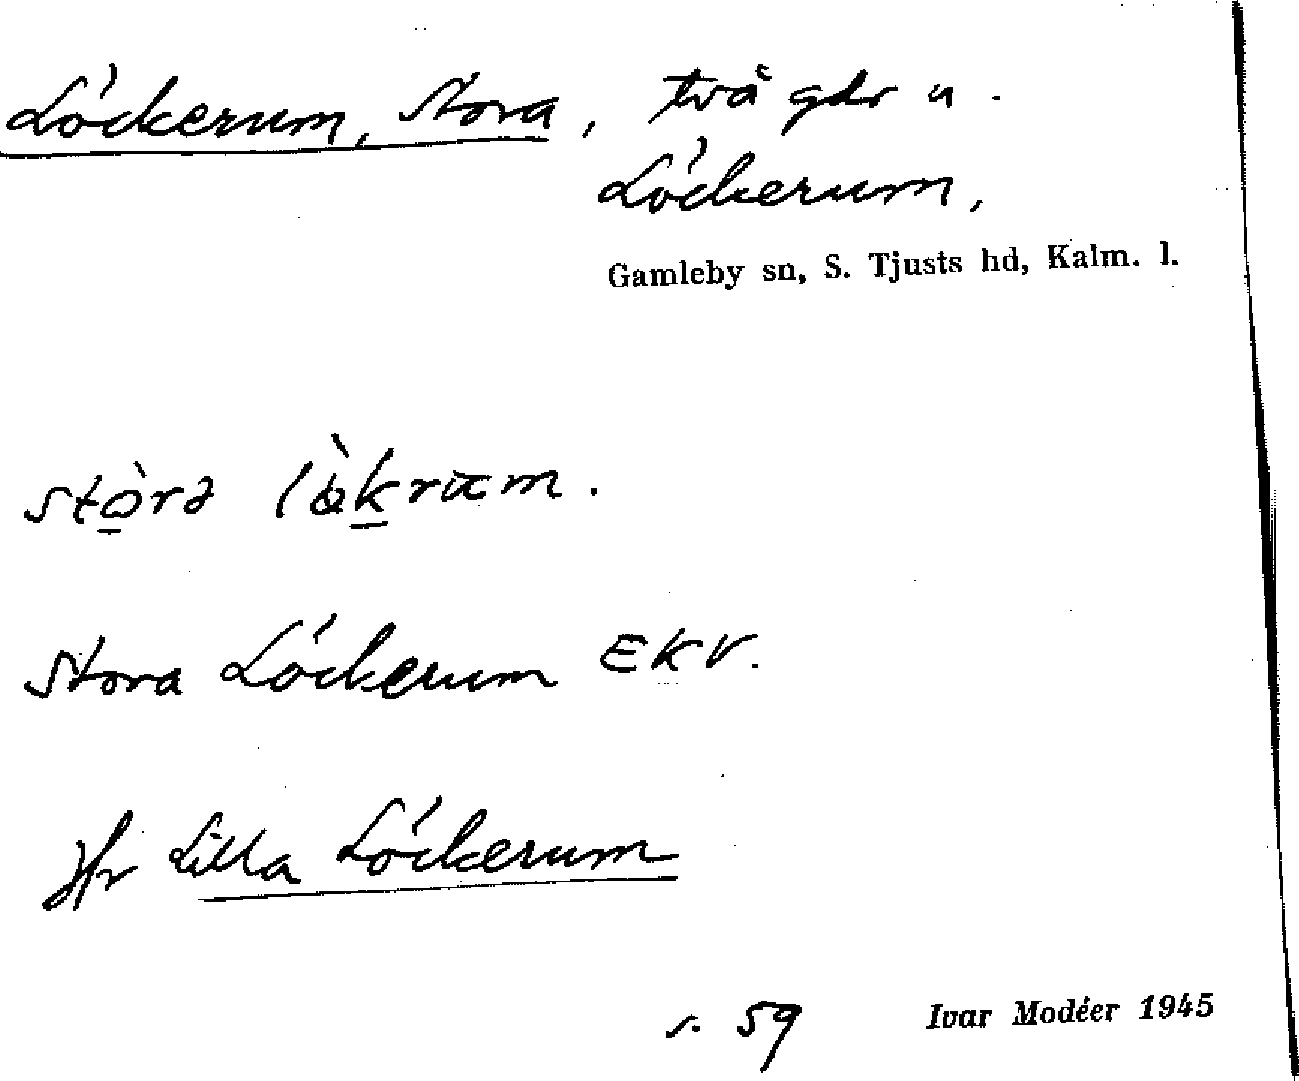 Löckerum, Stora, två gdr u.
Löckerum,
Gamleby sn, S. Tjusts hd, Kalm. l.
stòrə
Stora Löckerum EKV.
Jfr Lilla Löckerum
s. 59 Ivar Modéer 1945